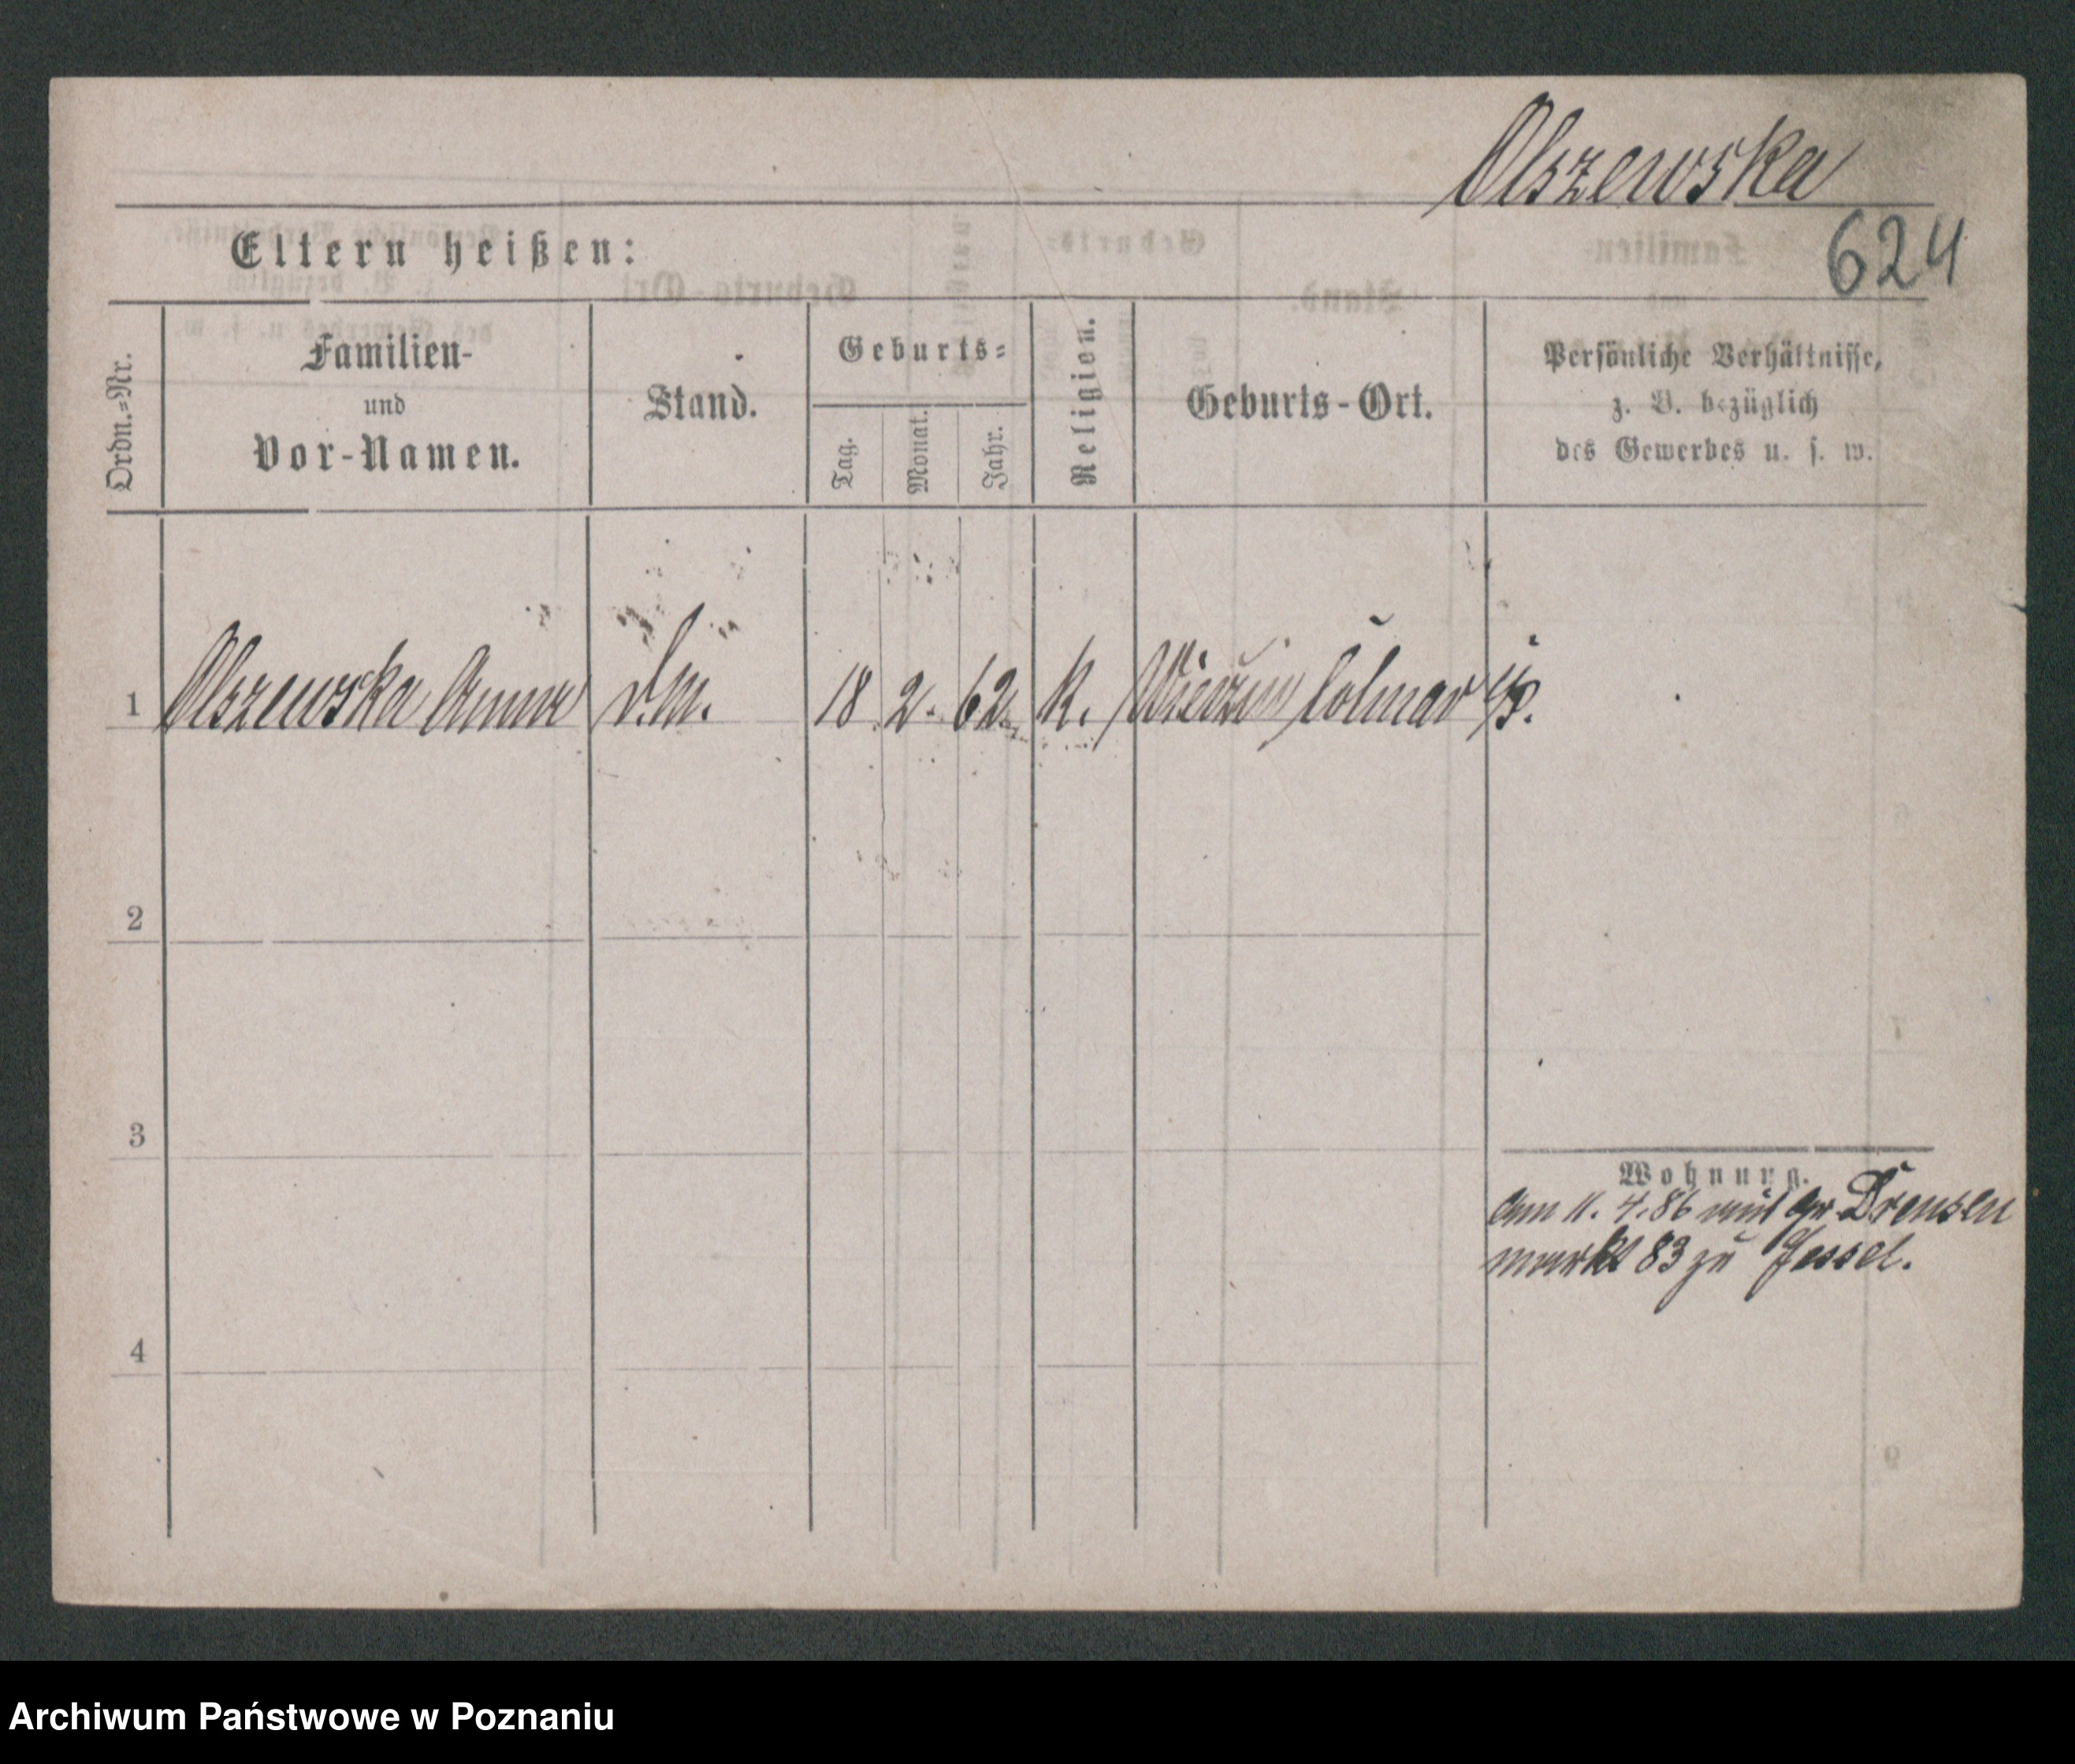 Olszewska
624
Eltern heißen:
Ordn.=Nr.
Familien-
und
Vor-Namen.
Stand.
Geburts=
Tag.
Monat.
Jahr.
Religion.
Geburts-Ort.
Persönliche Verhältnisse,
z. B. bezüglich
des Gewerbes u. s. w.
1 Olszewska Anna d.M. 18 2. 62. K. Colmar i/P.
2
3
Wohnung.
am 11. 4. 86
markt 83 zu Jessel.
4
Archiwum Państwowe w Poznaniu